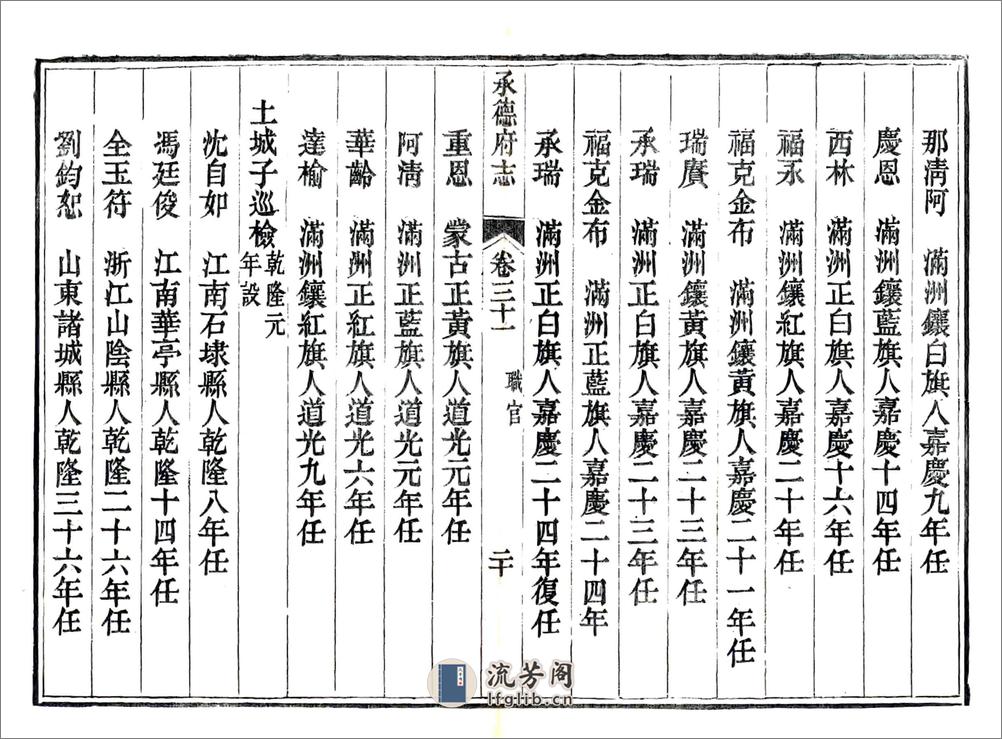 那淸阿 滿洲鑲白旗人嘉慶九年任
慶恩 滿洲鑲藍旗人嘉慶十四年任
西林 滿洲正白旗人嘉慶十六年任
福永 滿洲鑲紅旗人嘉慶二十年任
福克金布 滿洲鑲黃旗人嘉慶二十一年任
瑞賡 滿洲鑲黃旗人嘉慶二十三年任
承瑞 滿洲正白旗人嘉慶二十三年任
福克金布 滿洲正藍旗人嘉慶二十四年
承瑞 滿洲正白旗人嘉慶二十四年復任
承德府志 卷三十一 職官 二十
重恩 蒙古正黃旗人道光元年任
阿淸 滿洲正藍旗人道光元年任
華齡 滿洲正紅旗人道光六年任
達楡 滿洲鑲紅旗人道光九年任
土城子巡檢 乾隆元年設
沈自如 江南石埭縣人乾隆八年任
馮廷俊 江南華亭縣人乾隆十四年任
全玉符 浙江山陰縣人乾隆二十六年任
劉鈞恕 山東諸城縣人乾隆三十六年任
流芳阁
lfglib.cn